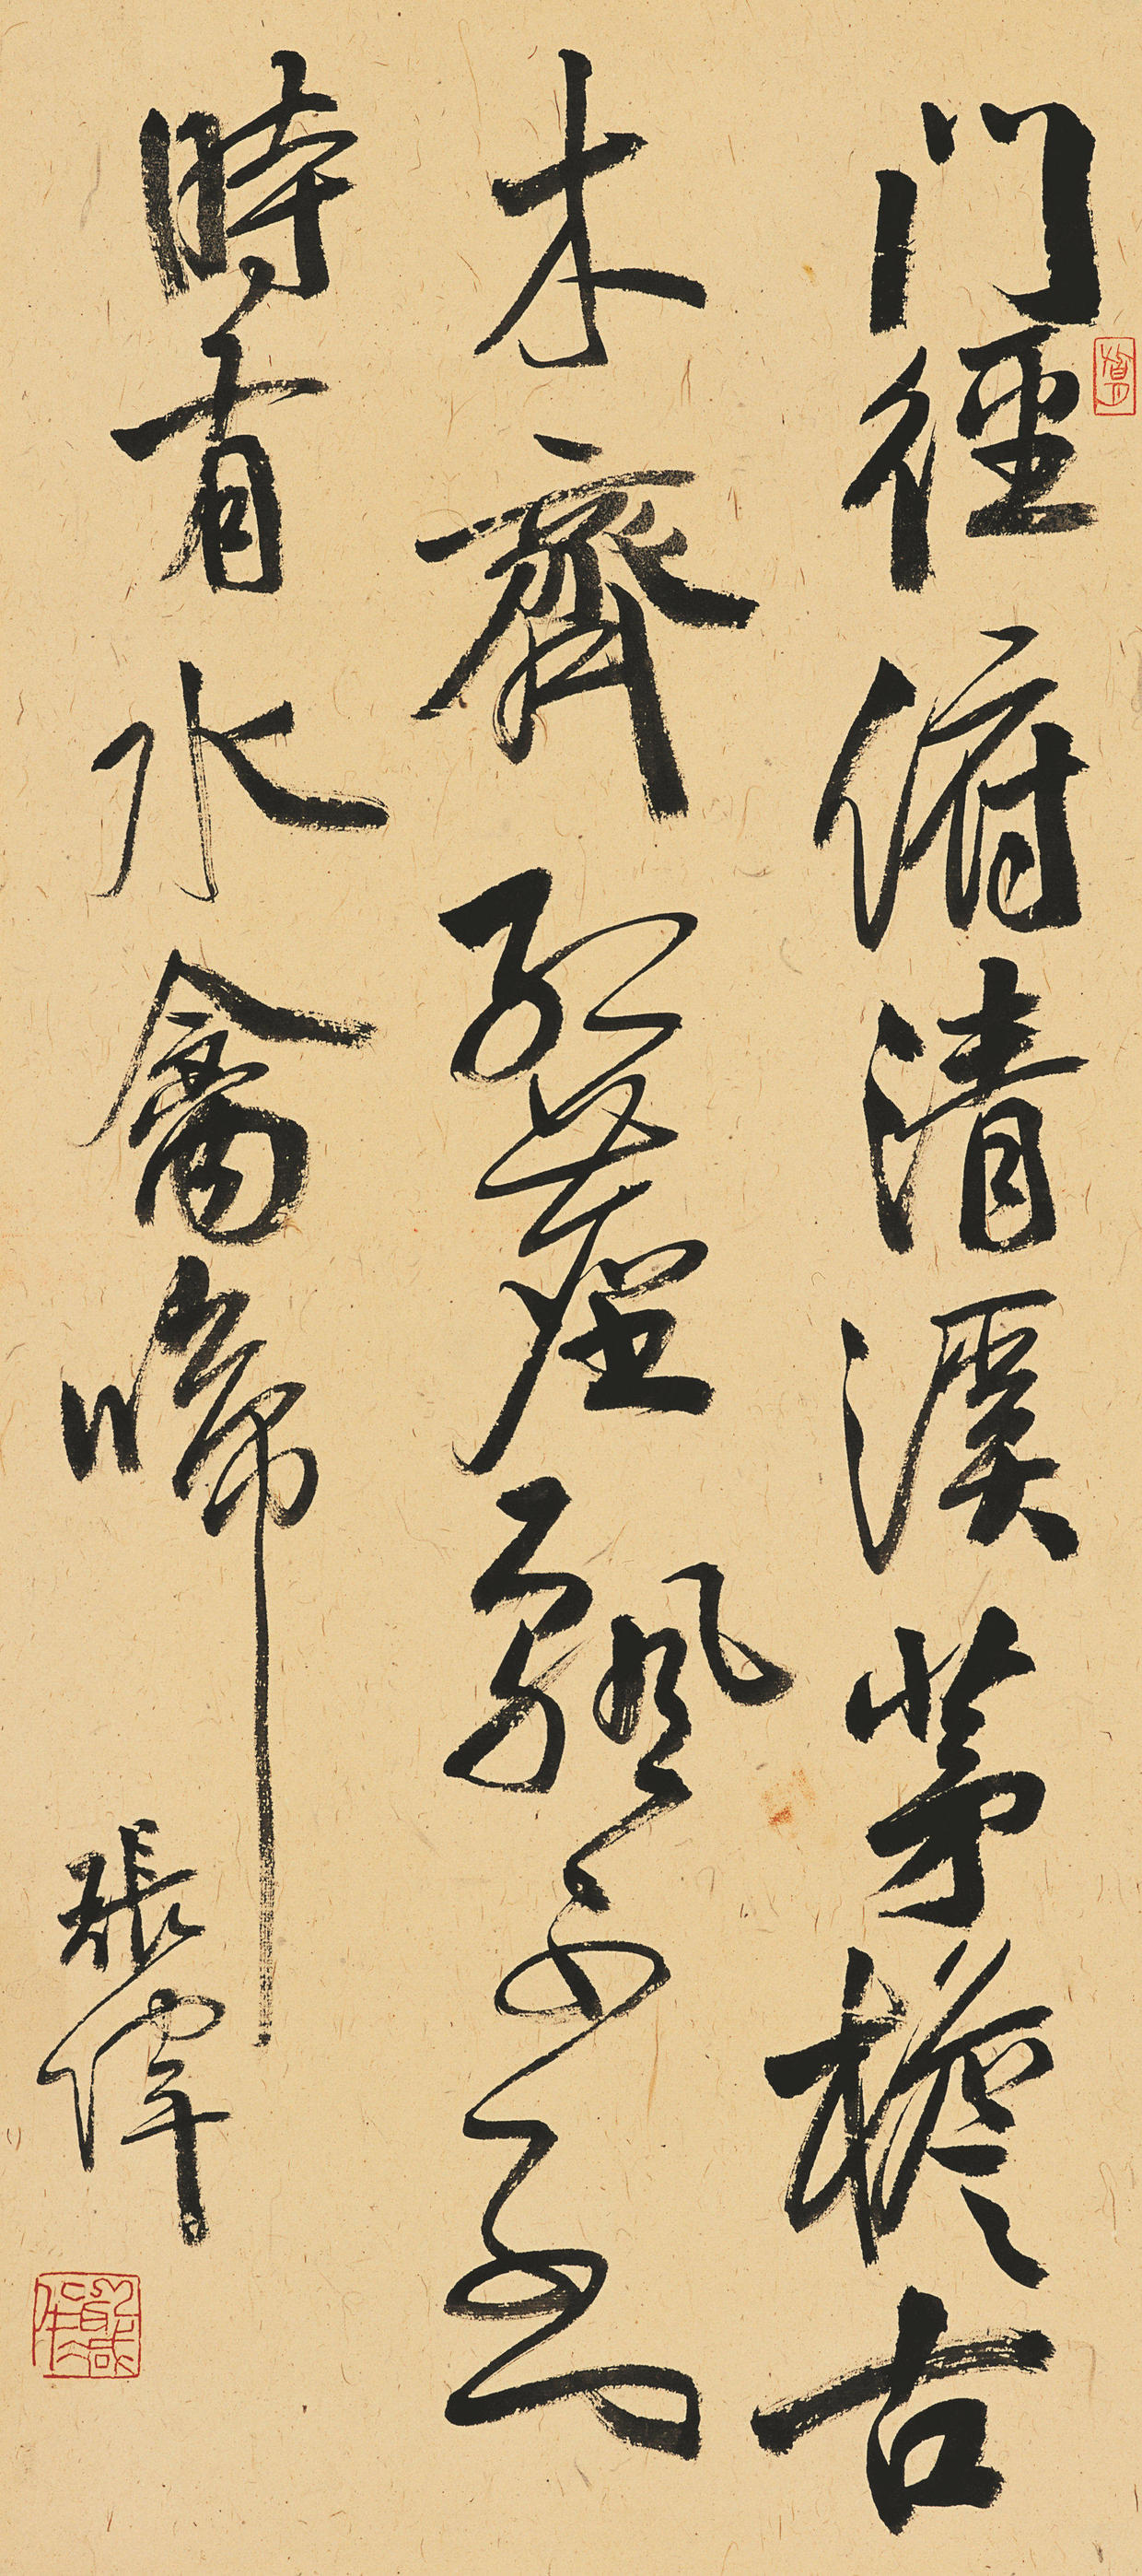 門徑俯清溪茅檐古
木齊紅塵飄不到
時有水禽啼
張偉